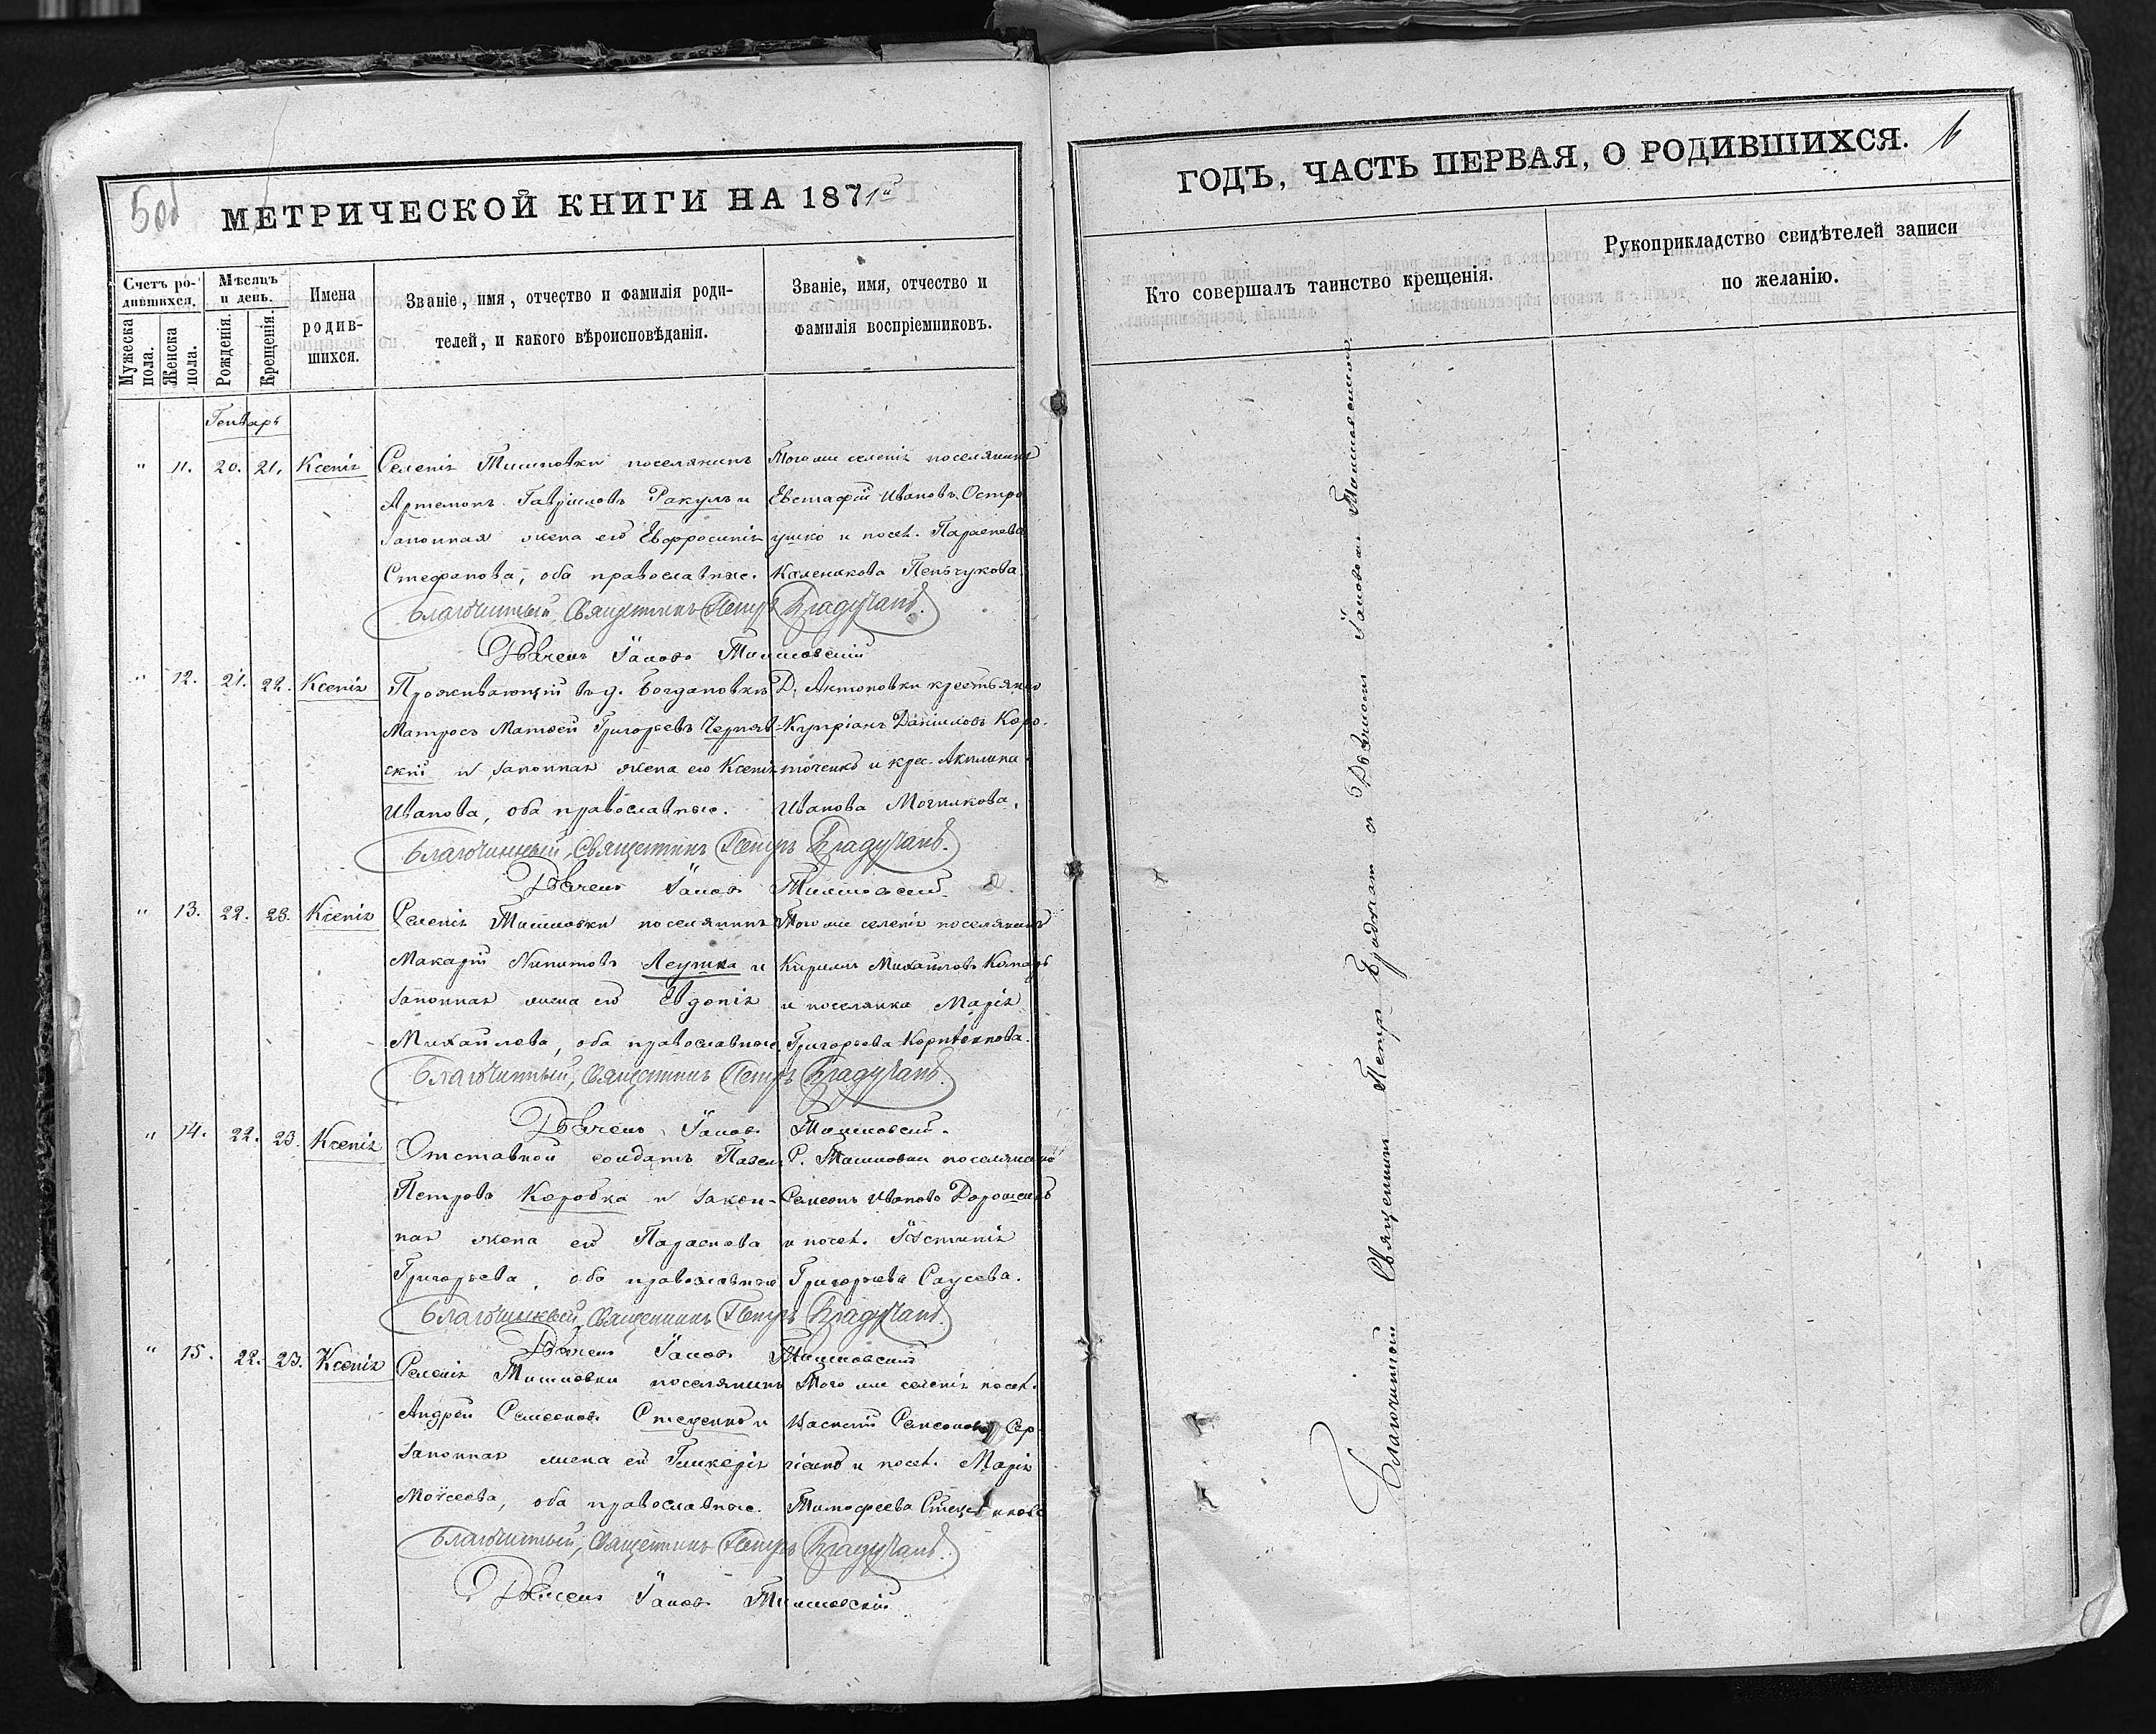 5 об
МЕТРИЧЕСКОЙ КНИГИ НА 1871й
Счетъ ро-
дившихся.
Мѣсяцъ
и день.
Мужеска
пола.
Женска
пола.
Рожденія.
Крещенія.
Имена
родив-
шихся.
Званіе, имя, отчество и фамилія роди-
телей, и какого вѣроисповѣданія.
Званіе, имя, отчество и
фамилія воспріемниковъ.
Генварь
" 11. 20. 21. Ксенія
Селенія Тишковки поселянинъ
Артемонъ Гавріиловъ Ракулъ и
законная жена его Евфросинія
Стефанова, оба православные.
Того же селенія поселянинъ
Евстафій Ивановъ Остро
ушко и посел. Параскева
Пенчукова
Благочинный, Священникъ Петръ
Дьячекъ Іаковъ Тишковскій
" 12. 21. 22. Ксенія
Проживающій въ д. Богдановкѣ
Матросъ Матвей Григорьевъ Черняв-
скій и законная жена его Ксенія
Иванова, оба православные.
Д. Антоновки крестьянинъ
Купріанъ Даніиловъ Коро-
тченко и крес. Акилина
Иванова Могилкова.
Благочинный, Священникъ Петръ
Дьячекъ Іаковъ Тишковскій
" 13. 22. 23. Ксенія
Селенія Тишковки поселянинъ
Макарій Никитовъ Леушка и
законная жена его Евдокія
Михайлова, оба православные.
Того же селенія поселянинъ
Кирилъ Михайловъ Комаръ
и поселянка Марія
Григорьева
Благочинный, Священникъ Петръ
Дьячекъ Іаковъ Тишковскій.
" 14. 22. 23. Ксенія
Отставной солдатъ Павелъ
Петровъ Коробка и закон-
ная жена его Параскева
Григорьева, оба православные
С. Тишковки поселянинъ
Семеонъ Ивановъ Дорошенко
и посел. Іустинія
Григорьева Саусева.
Благочинный, Священникъ Петръ
Дьячекъ Іаковъ Тишковскій
" 15. 22. 23. Ксенія
Селенія Тишковки поселянинъ
Андрей Семеоновъ Стеценко и
законная жена его Гликерія
Мойсеева, оба православные.
Того же селенія посел.
Василій Семеоновъ Сер-
гіенко и посел. Марія
Тимофеева
Благочинный, Священникъ Петръ
Дьячекъ Іаковъ Тишковскій.
ГОДЪ, ЧАСТЬ ПЕРВАЯ, О РОДИВШИХСЯ.
6
Кто совершалъ таинство крещенія.
Рукоприкладство свидѣтелей записи
по желанію.
Благочинный Священникъ Петръ с Дьячкомъ Іаковомъ Тишковскимъ